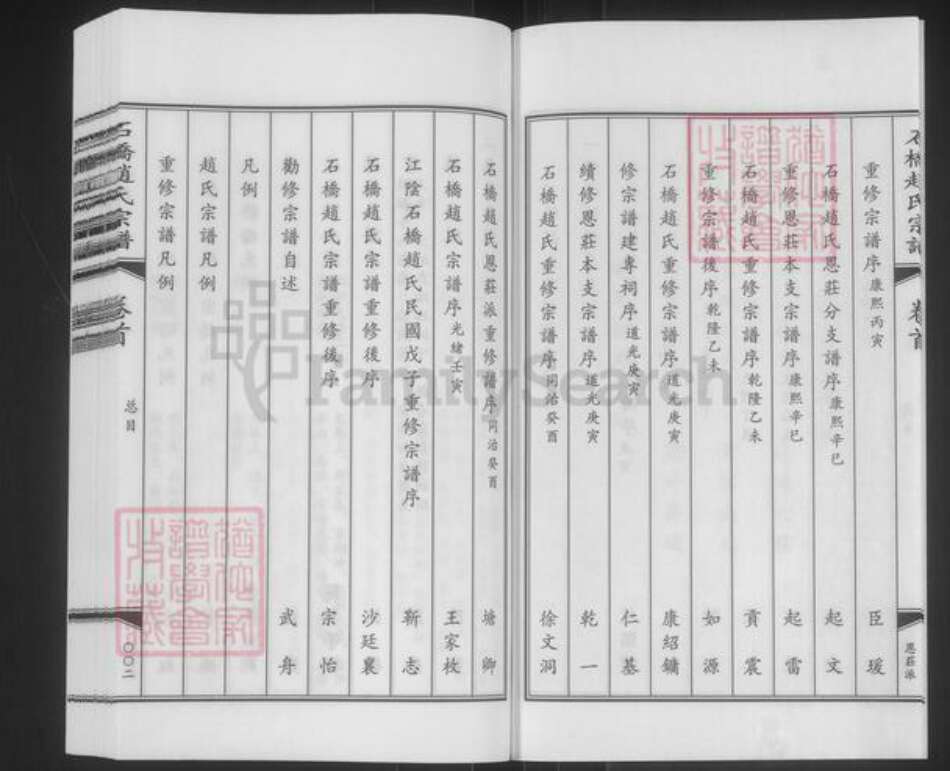 石橋趙氏宗譜 卷首
恩莊派
重修宗譜序 康熙丙寅 臣瑗
石橋趙氏恩莊分支譜序 康熙辛巳 起文
重修恩莊本支宗譜序 康熙辛巳 起雷
石橋趙氏重修宗譜序 乾隆乙未 貢震
重修宗譜後序 乾隆乙未 如源
石橋趙氏重修宗譜序 道光庚寅 康紹鏞
修宗譜建專祠序 道光庚寅 仁基
續修恩莊本支宗譜序 道光庚寅 乾一
石橋趙氏重修宗譜序 同治癸酉 徐文洞
石橋趙氏恩莊派重修譜序 同治癸酉 塘卿
石橋趙氏宗譜序 光緒壬寅 王家枚
江陰石橋趙氏民國戊子重修宗譜序 靳志
石橋趙氏宗譜重修後序 沙廷襄
石橋趙氏宗譜重修後序 宗怡
勸修宗譜自述 武舟
凡例
趙氏宗譜凡例
重修宗譜凡例
石橋趙氏宗譜 卷首
总目
〇〇二
FamilySearch